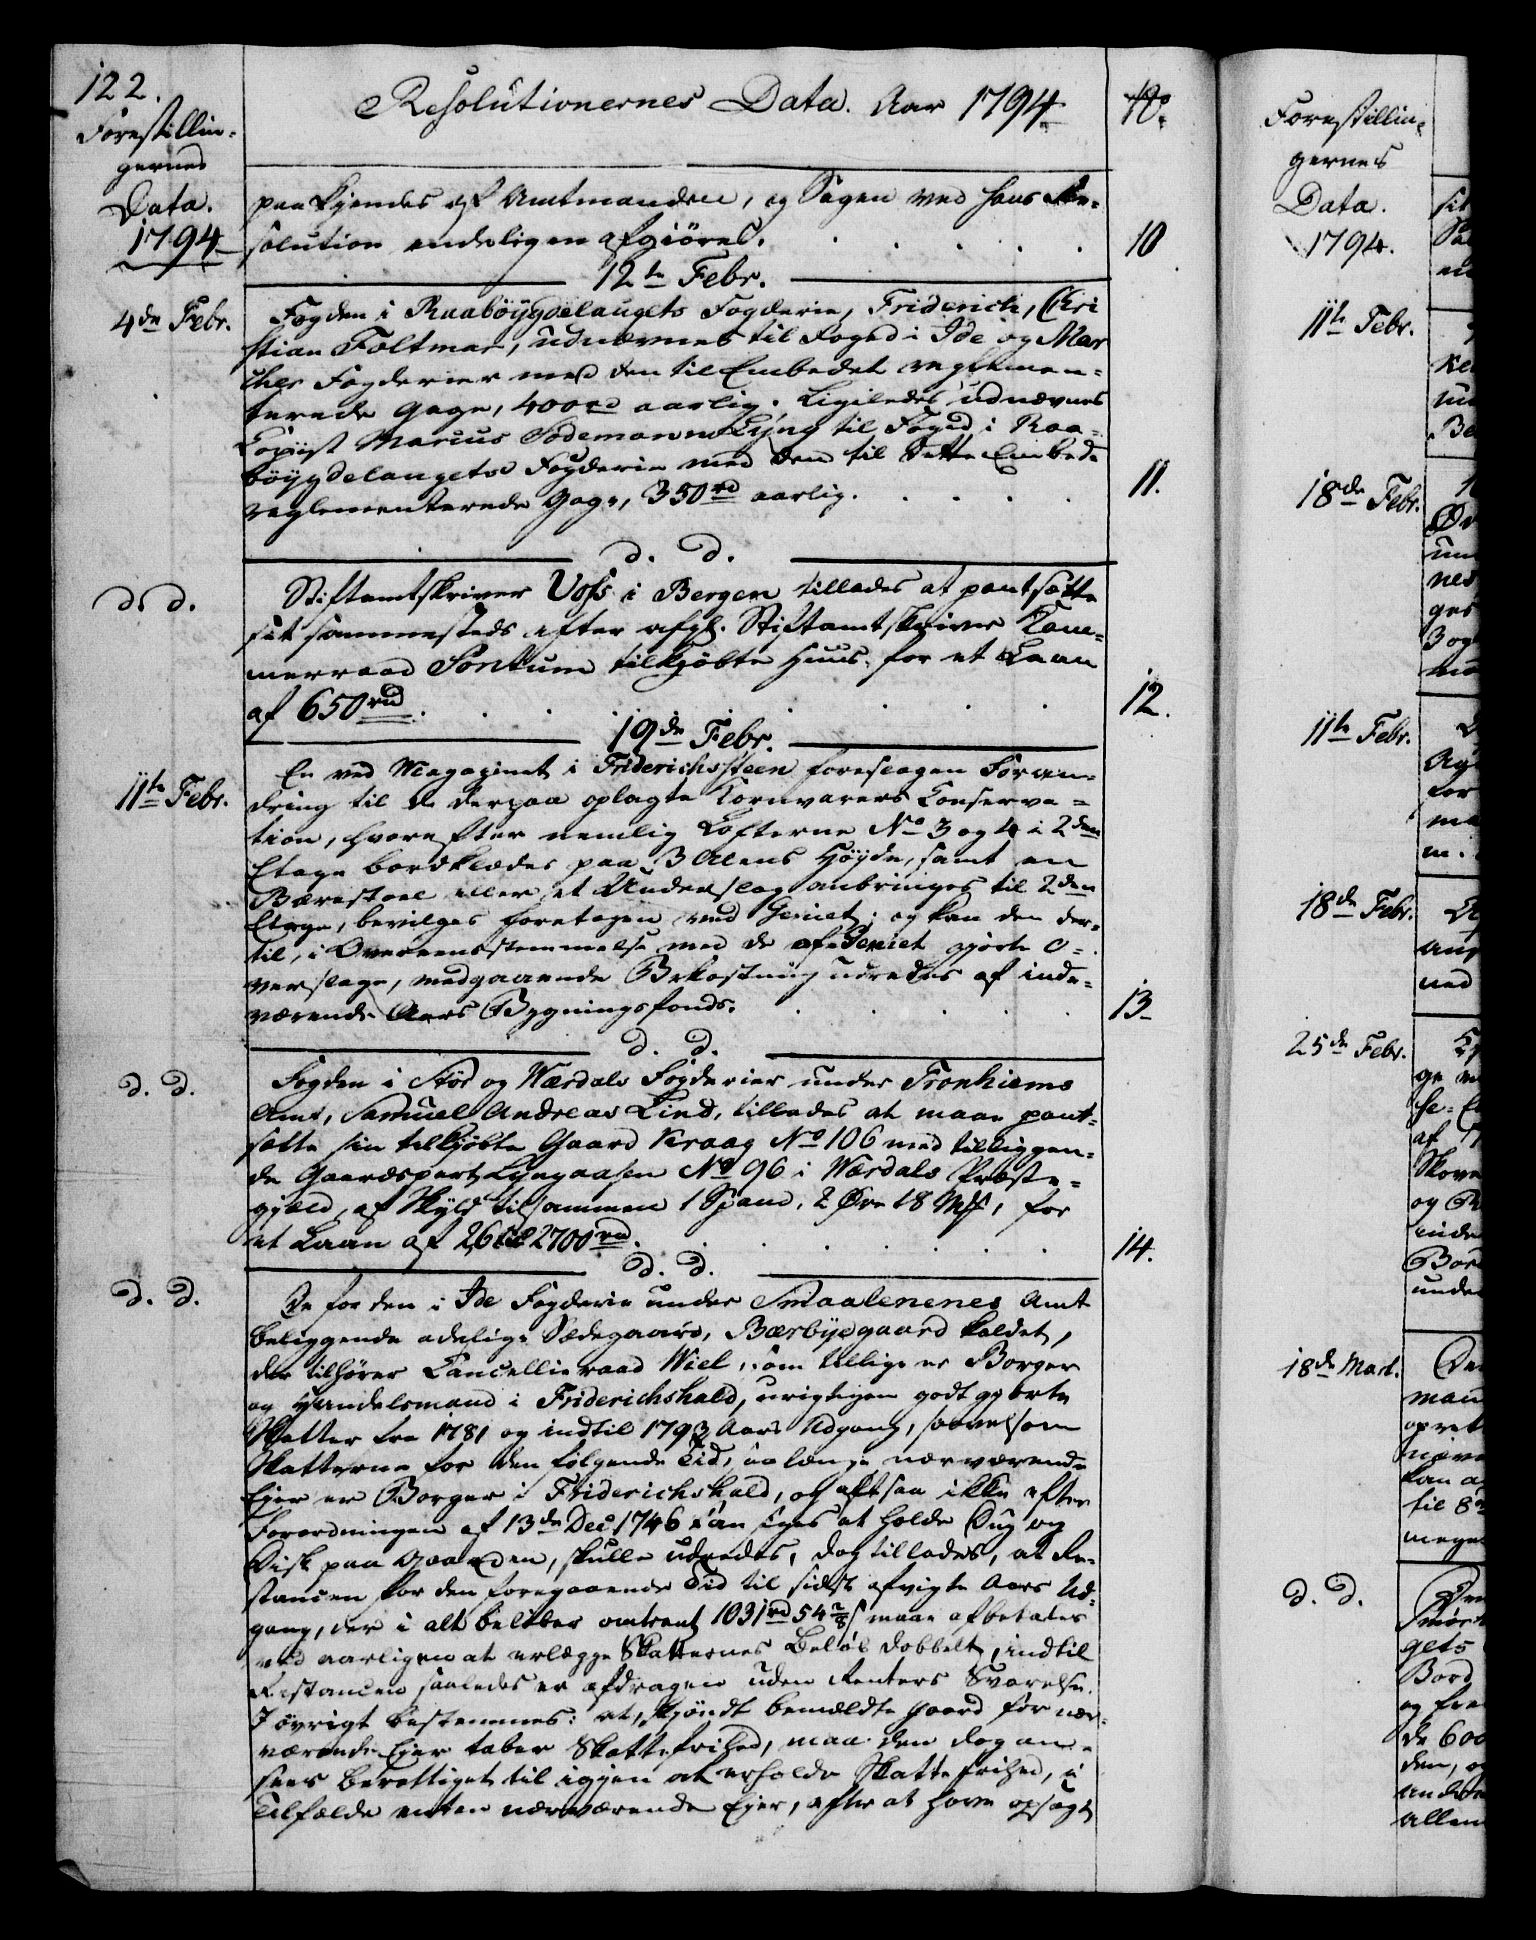 122.
Forestillin-
gernes
Data.
1794
Resolutionernes Data. Aar 1794.
No.
paakjendes af Amtmanden, og Sagen ved hans Re-
solution endeligen afgiöres. 10
12te Febr.
4de Febr.
Fogden i Raaböÿgdelaugets Fogderie, Friderich, Chri
stian Foltmar, udnævnes til Foged i Ide og Mar
ches Fogderier med den til Embedet reglemen-
terede Gage, 400 rd aarlig. Ligeledes udnævnes
Copiist Marius Sodemann Lÿng til Foged i Raa-
böÿgdelaugets Fogderie med den til dette Embede
reglementerede Gage, 350 rd aarlig. 11.
d. d.
d. d.
Stiftamtskriver Voss i Bergen tillades at pantsætte
sit sammesteds efter afg. Stiftamtskriver Kam-
merraad Sontum tilkjøbte Huus for et Laan
af 650 rd. 12.
19de Febr.
11te Febr.
En ved Magazinet i Friderichssteen foreslagen Foran-
dring til de derpaa oplagte Kornvarers Conserva-
tion, hvorefter nemlig Lofterne No 3 og 4 i 2den
Etage bordklædes paa 3 Alens Höÿde, samt en
Bærestoel eller et Underslag anbringes til 2den
Etage, bevilges foretagen ved Geniet; og kan den der-
til, i Overeensstemmelse med de af Geniet gjorte O-
verslage, medgaaende Bekostning udredes af inde-
værende Aars Bygningsfonds. 13
d. d.
d. d.
Fogden i Stör og Værdals Fogderier under Tronhiems
Amt, Samuel Andreas Lind, tillades at maae pant-
sætte sin tilkjøbte Gaard Kraag No 106 med tilliggen-
de Gaardspart Lyngaasen No 96 i Værdals Præste-
gjæld, af Skyld tilsammen 1 Spand, 2 Øre 18 Mk, for
et Laan af 26 til 2700 rd. 14.
d. d.
d. d.
De for den i Ide Fogderie under Smaalenenes Amt
beliggende adelige Sædegaard, Bærbÿegaard kaldet,
der tilhører Cancellieraad Wiel, som tillige er Borger
og Handelsmand i Friderichshald, urigtigen godtgjorte
Skatter fra 1781 og indtil 1793 Aars Udgang, saavelsom
Skatterne for den følgende Tid, saalænge nærværende
Ejer er Borger i Friderichshald, og altsaa ikke efter
Forordningen af 13de Dec 1746 kan siges at holde Dug og
Disk paa Gaarden, skulle udredes, dog tillades, at Re-
stancen for den foregaaende Tid til sidst afvigte Aars Ud-
gang, der i alt beløber omtrent 1031 rd 54 2/8 s maae afbetales
ved aarligen at erlægge Skatternes Beløb dobbelt, indtil
Restancen saaledes er afdragen uden Renters Svarelse.
I övrigt bestemmes: at, skjöndt bemældte Gaard for nær-
værende Ejer taber Skattefrihed, maa den dog an-
sees berettiget til igjen at erholde Skattefrihed, i
Tilfælde enten nærværende Ejer, efter at have opsagt
Forestillin-
gernes
Data.
1794.
11te Febr.
18de Febr.
11te Febr.
18de Febr.
25de Febr.
18de Mart.
d. d.